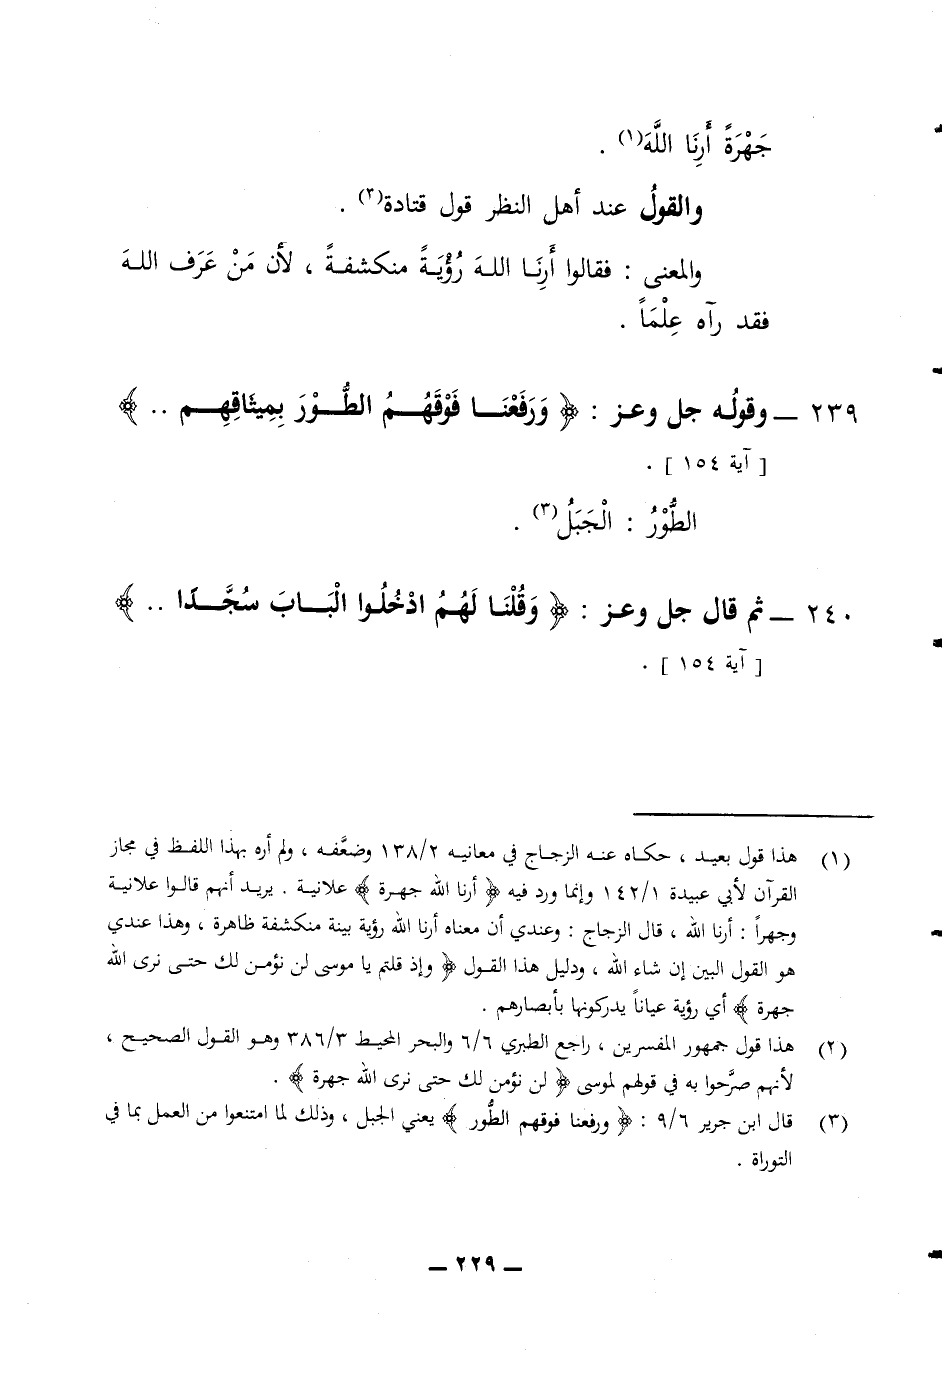 جَهْرَةً أَرِنَا اللَّهَ(١) .
والقولُ عند أهل النظر قول قتادة(٢) .
والمعنى : فقالوا أَرِنَا اللهَ رُؤْيَةً منكشفةً ، لأن مَنْ عَرَف الله
فقد رآه عِلْمَاً .
٢٣٩ ــ وقولُه جل وعز : ﴿ وَرَفَعْنَا فَوْقَهُمُ الطُّوْرَ بِمِيثَاقِهِم .. ﴾
[ آية ١٥٤ ] .
الطُّوْرُ : الْجَبَلُ(٣) .
٢٤٠ ــ ثم قال جل وعز : ﴿ وَقُلْنَا لَهُمُ ادْخُلُوا الْبَابَ سُجَّدًا .. ﴾
[ آية ١٥٤ ] .
(١) هذا قول بعيد ، حكاه عنه الزجاج في معانيه ١٣٨/٢ وضعَّفه ، ولم أره بهذا اللفظ في مجاز
القرآن لأبي عبيدة ١٤٢/١ وإنما ورد فيه ﴿ أرنا الله جهرة ﴾ علانية . يريد أنهم قالوا علانية
وجهراً : أرنا الله ، قال الزجاج : وعندي أن معناه أرنا الله رؤية بينة منكشفة ظاهرة ، وهذا عندي
هو القول البين إن شاء الله ، ودليل هذا القول ﴿ وإذ قلتم يا موسى لن نؤمن لك حتى نرى الله
جهرة ﴾ أي رؤية عياناً يدركونها بأبصارهم .
(٢) هذا قول جمهور المفسرين ، راجع الطبري ٦/٦ والبحر المحيط ٣٨٦/٣ وهو القول الصحيح ،
لأنهم صرَّحوا به في قولهم لموسى ﴿ لن نؤمن لك حتى نرى الله جهرة ﴾ .
(٣) قال ابن جرير ٩/٦ : ﴿ ورفعنا فوقهم الطُّور ﴾ يعني الجبل ، وذلك لما امتنعوا من العمل بما في
التوراة .
ــ ٢٢٩ ــ